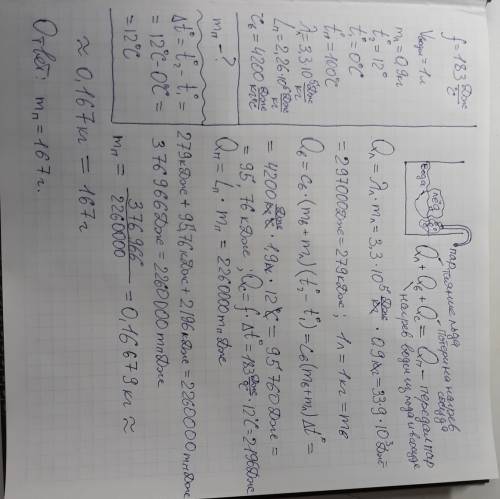 f = 183 Дж/°C
Vводы = 1л
mл = 0,9кг
t₂° = 12°
t₁° = 0°C
tп° = 100°C
λл = 3,3·10⁵ Дж/кг
Lп = 2,26·10⁶ Дж/кг
cв = 4200 Дж/кг°C
mп - ?
Δt° = t₂° - t₁° =
= 12°C - 0°C =
= 12°C
вода
лёд
пар
таяние льда
потери на нагрев сосуда
Qл + Qв + Qс = Qп - передал пар
нагрев воды из льда и в сосуде
Qл = λл · mл = 3,3·10⁵ Дж/кг · 0,9кг = 339·10³ Дж
= 297000Дж = 279кДж; 1л = 1кг = mв
Qв = cв·(mв + mл)(t₂° - t₁°) = cв(mв + mл)Δt° =
= 4200 Дж/кг°C · 1,9кг · 12°C = 95760Дж =
= 95,76кДж; Qс = f·Δt° = 183 Дж/°C · 12°C = 2196Дж
Qп = Lп · mп = 2260000mп Дж
279кДж + 95,76кДж + 2,196кДж = 2260000mп Дж
376966Дж = 2260000mп Дж
mп = 376966/2260000 = 0,16679кг ≈
≈ 0,167кг = 167г
Ответ: mп = 167г.